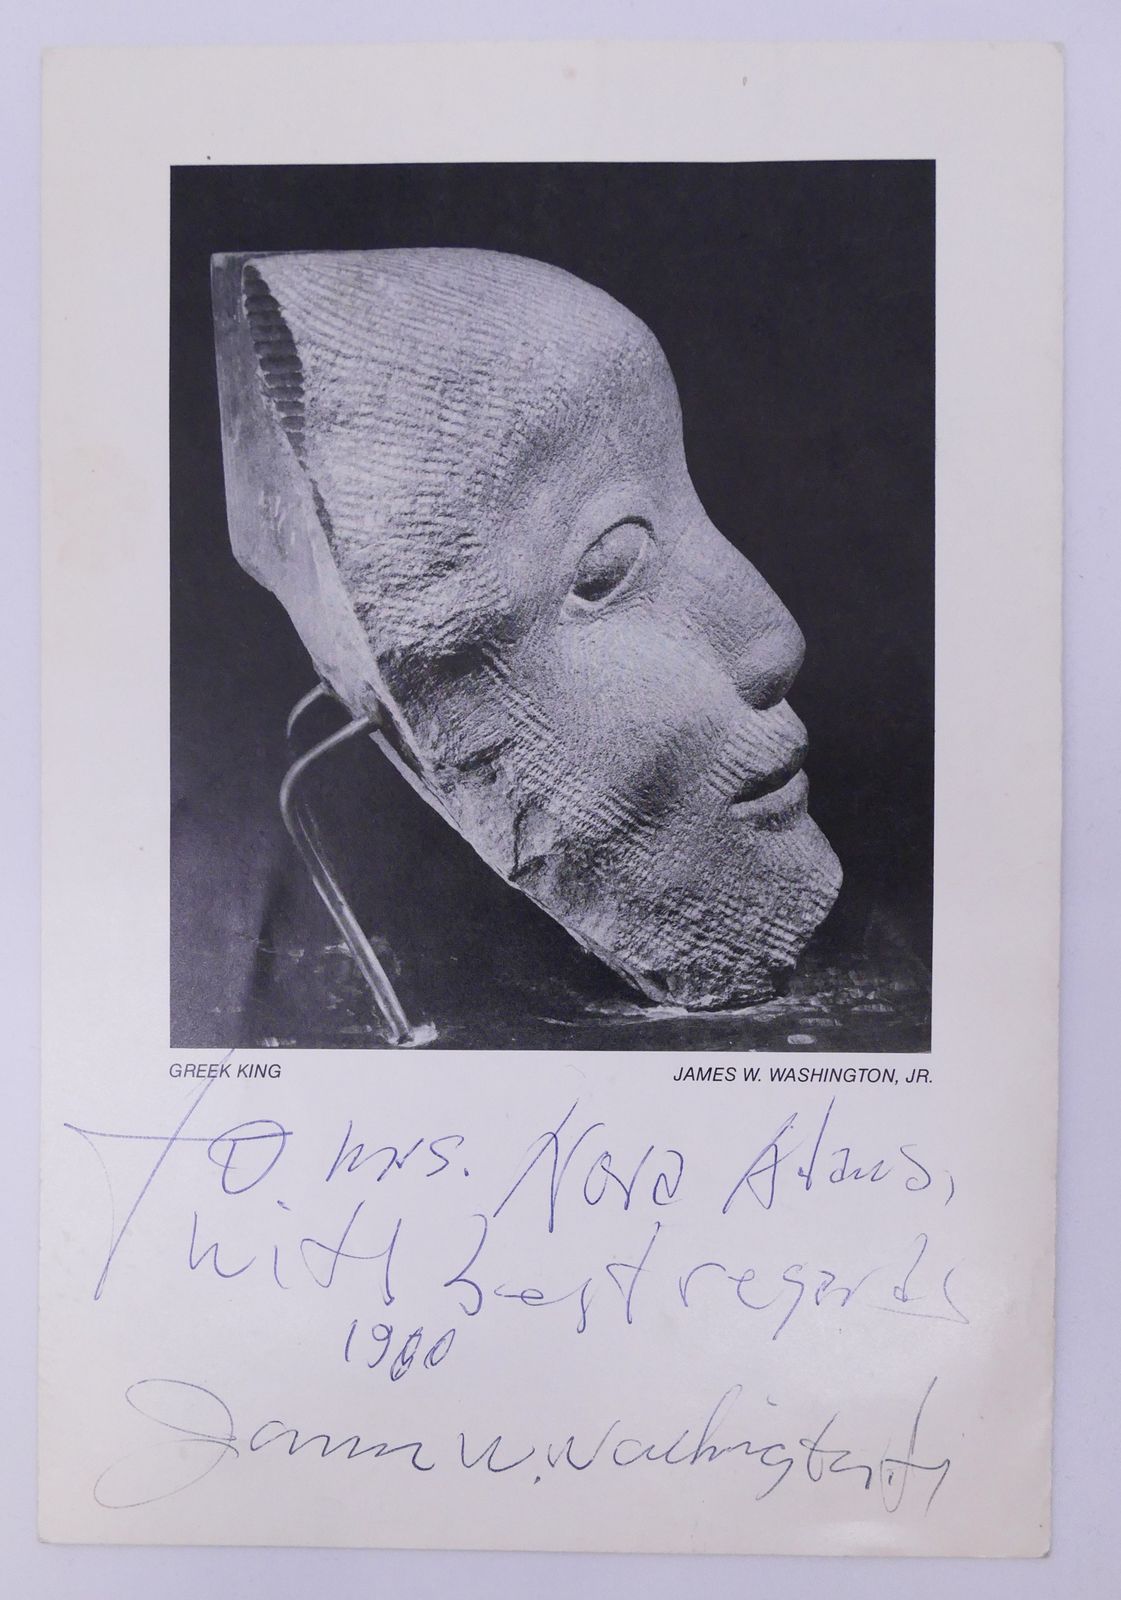 GREEK KING
JAMES W. WASHINGTON, JR.
To Mrs. Nora Adams,
with best regards
1980
James W. Washington, Jr